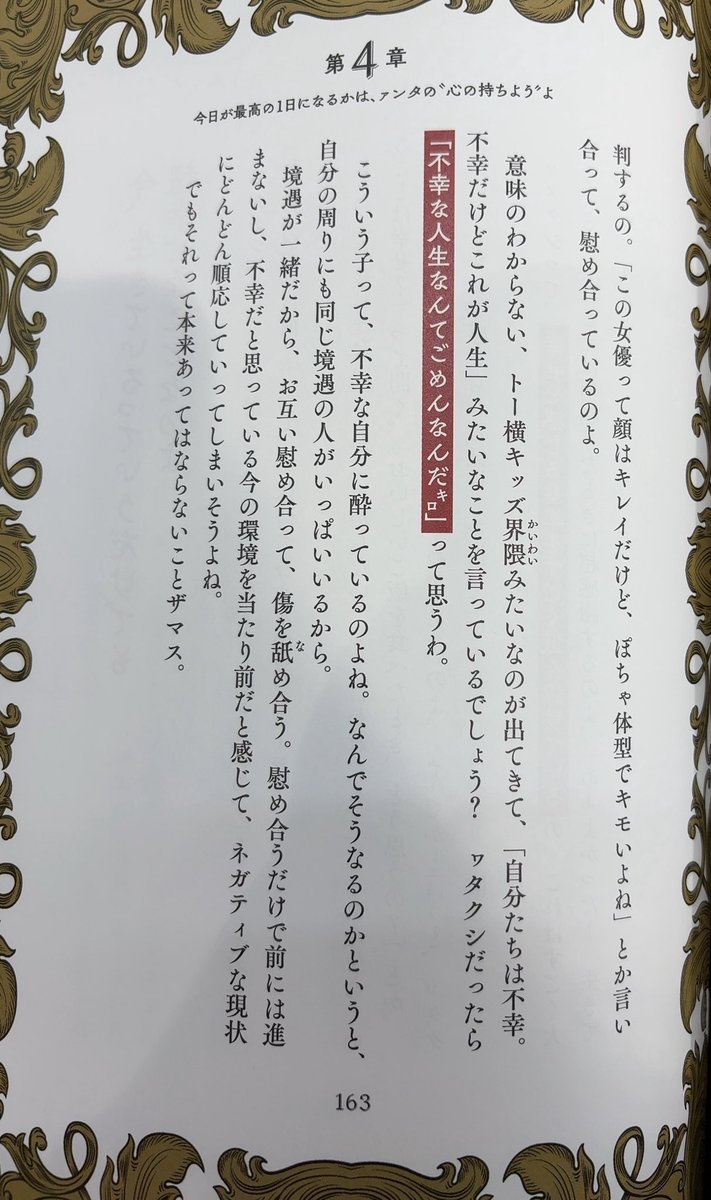 第4章
今日が最高の1日になるかは、ァンタの〝心の持ちよう〟よ
判するの。「この女優って顔はキレイだけど、ぽちゃ体型でキモいよね」とか言い
合って、慰め合っているのよ。
意味のわからない、トー横キッズ界隈みたいなのが出てきて、「自分たちは不幸。
かいわい
不幸だけどこれが人生」みたいなことを言っているでしょう？　ヮタクシだったら
「不幸な人生なんてごめんなんだ㌔」って思うわ。
こういう子って、不幸な自分に酔っているのよね。なんでそうなるのかというと、
自分の周りにも同じ境遇の人がいっぱいいるから。
境遇が一緒だから、お互い慰め合って、傷を舐め合う。慰め合うだけで前には進
な
まないし、不幸だと思っている今の環境を当たり前だと感じて、ネガティブな現状
にどんどん順応していってしまいそうよね。
でもそれって本来あってはならないことザマス。
163